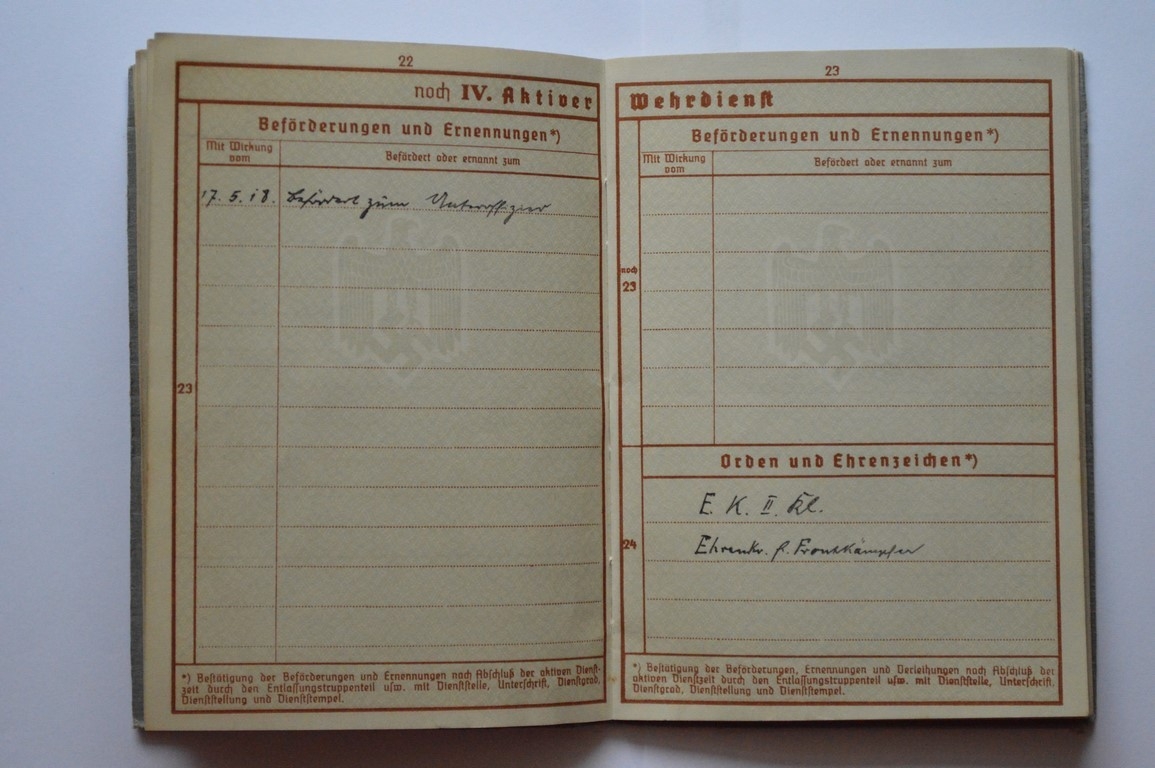 22
noch IV. Aktiver
Beförderungen und Ernennungen*)
Mit Wirkung
vom
Befördert oder ernannt zum
17. 5. 18. Befördert zum Unteroffizier
23
*) Bestätigung der Beförderungen und Ernennungen nach Abschluß der aktiven Dienst-
zeit durch den Entlassungstruppenteil usw. mit Dienststelle, Unterschrift, Dienstgrad,
Dienststellung und Dienststempel.
23
Wehrdienst
Beförderungen und Ernennungen*)
Mit Wirkung
vom
Befördert oder ernannt zum
noch
23
Orden und Ehrenzeichen*)
E. K. II. Kl.
24
Ehrenkr. f. Frontkämpfer
*) Bestätigung der Beförderungen, Ernennungen und Verleihungen nach Abschluß der
aktiven Dienstzeit durch den Entlassungstruppenteil usw. mit Dienststelle, Unterschrift,
Dienstgrad, Dienststellung und Dienststempel.